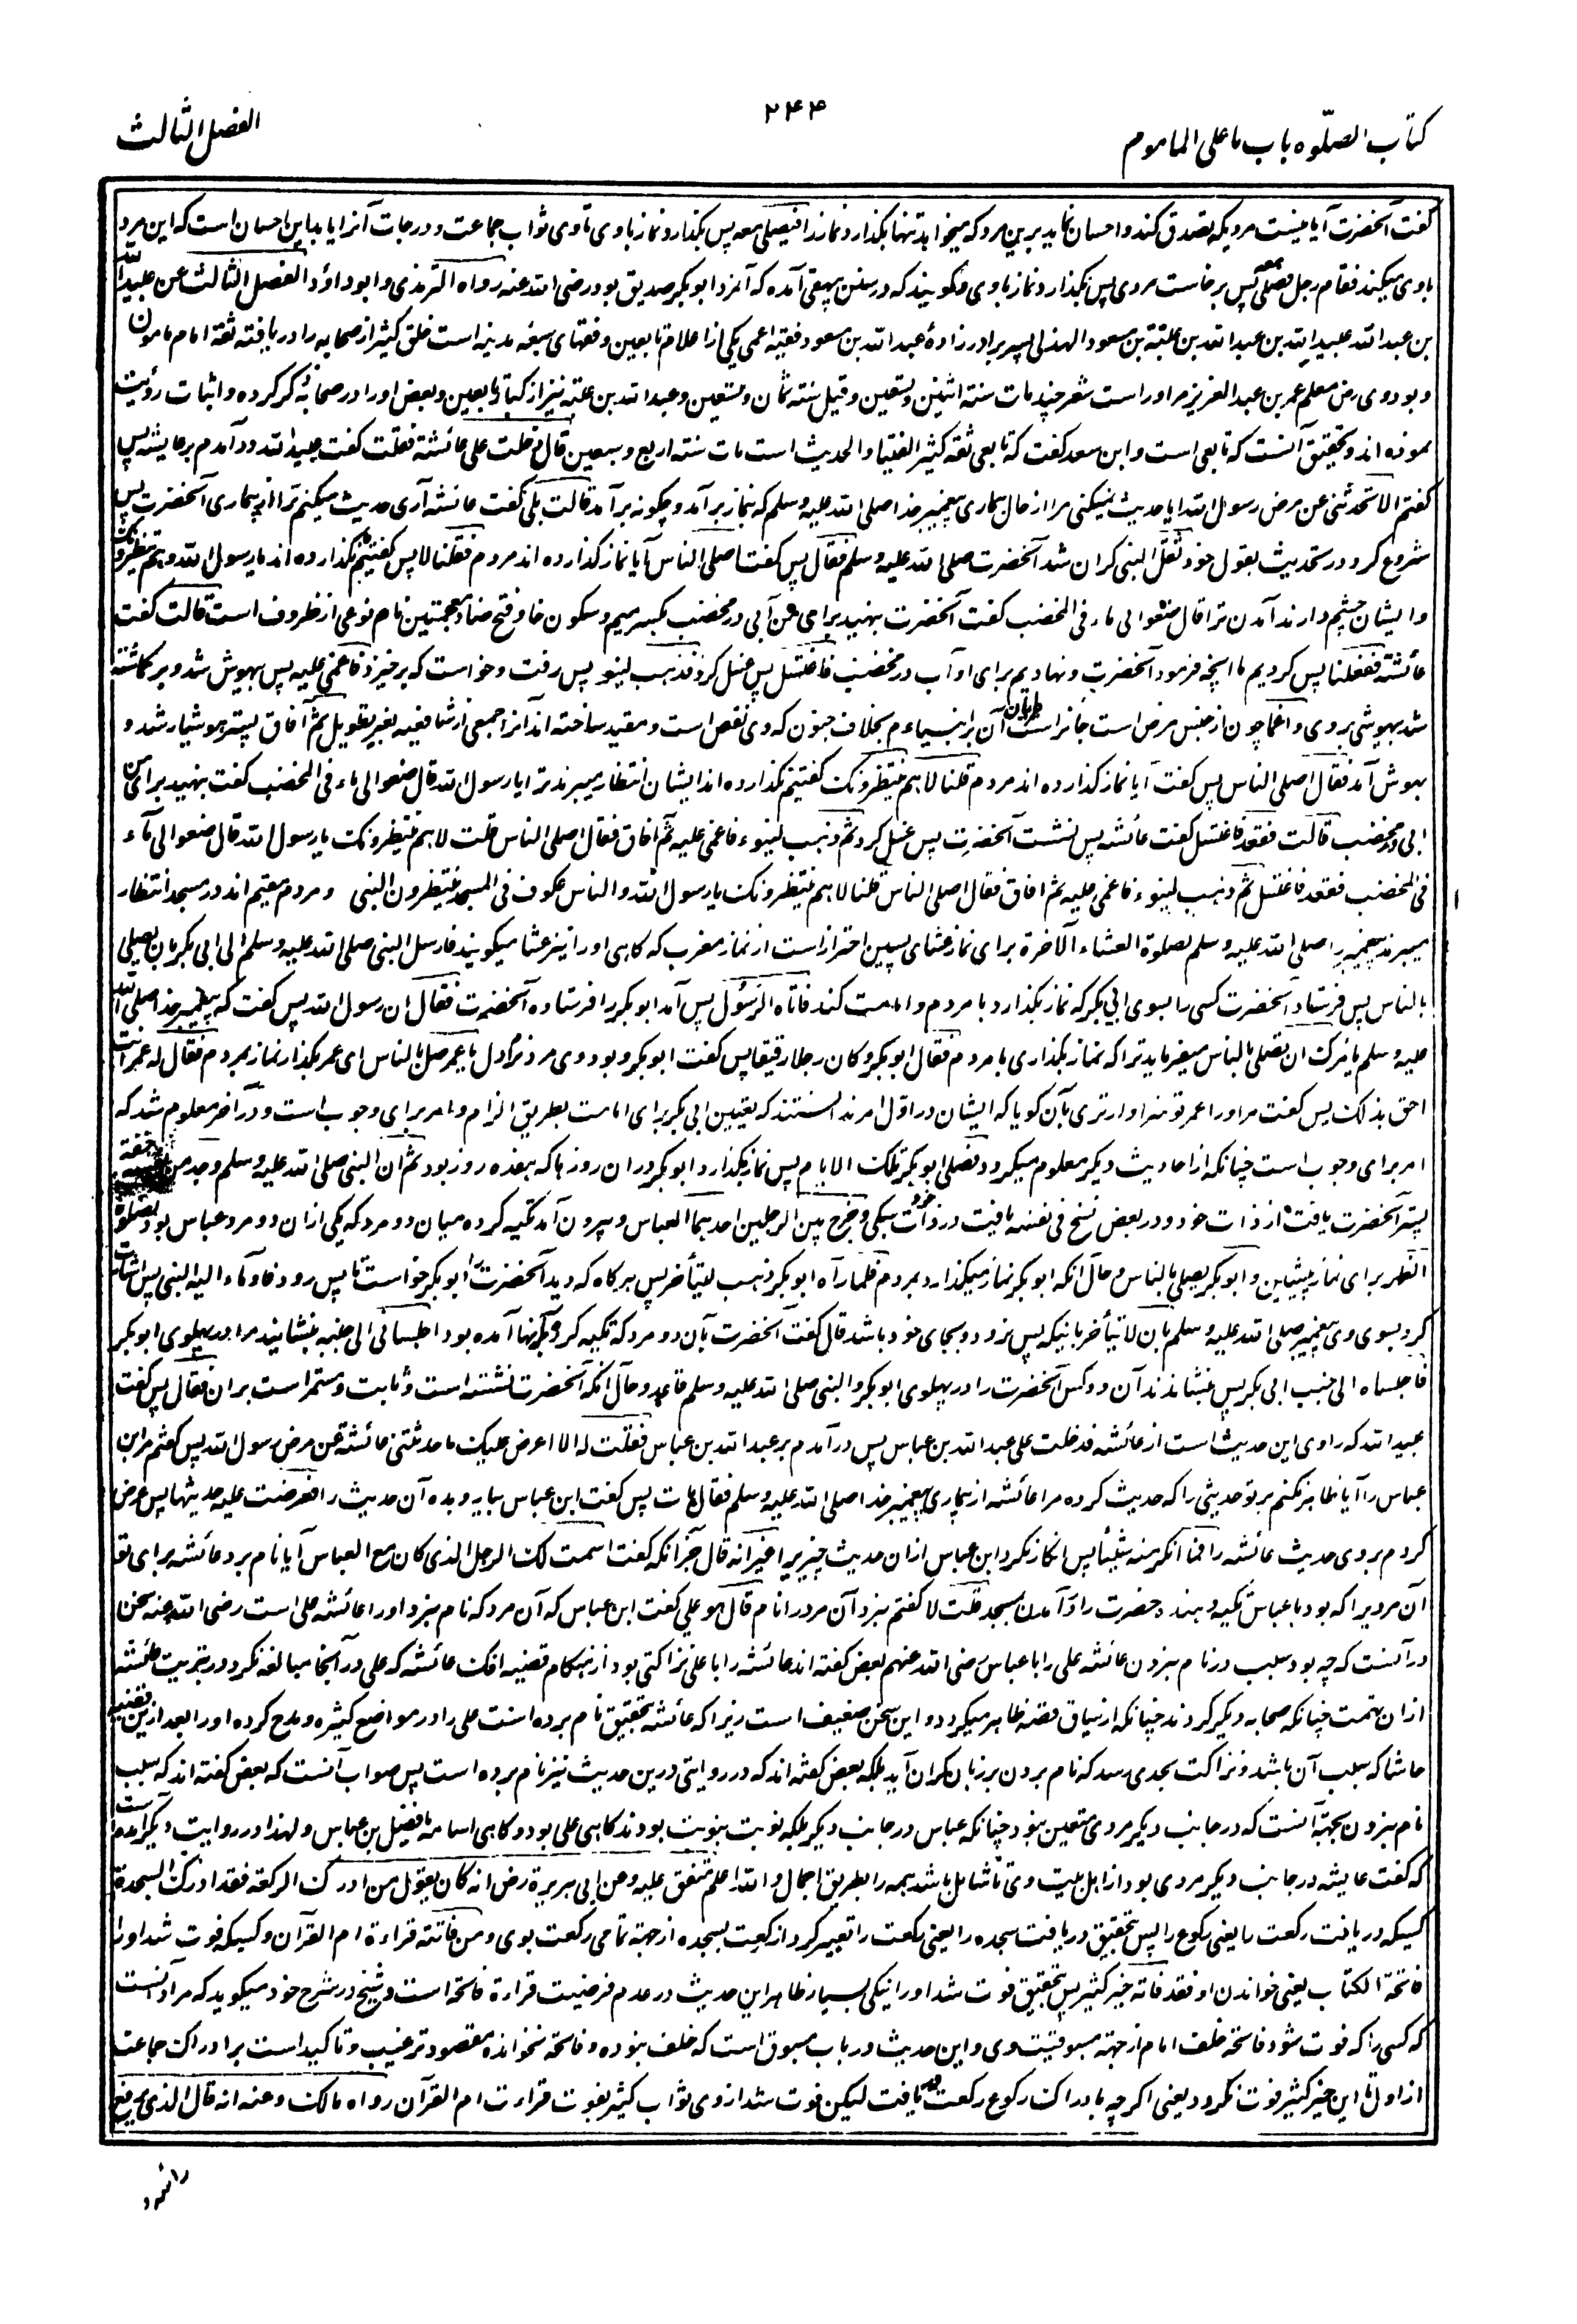 کتاب الصلوه باب ما علی الماموم
۲۴۴
الفصل الثالث
گفت آنحضرت آیا نیست مردیکه تصدق کند و احسان نماید برین مرد که میخواهد تنها بگذارد نماز را فیصلی معه پس بگذارد نماز با وی تا وی ثواب جماعت و درجات آنرا یابد این احسان است که این مرد
با وی میکند فقام رجل فصلی معه پس برخاست مردی پس بگذارد نماز با وی و گویند که در سنن بیهقی آمده که آنمرد ابوبکر صدیق بود رضی الله عنه رواه الترمذی و ابوداود الفصل الثالث عن عبیدالله
بن عبدالله عبیدالله بن عبدالله بن عتبة بن مسعود الهذلی پسر برادرزادهٔ عبدالله بن مسعود فقیه اعمی یکی از اعلام تابعین و فقهای سبعه مدینه است خلق کثیر از صحابه را دریافته ثقة امام مامون
و بود وی رض معلم عمر بن عبدالعزیز مر او راست شعر چند مات سنة اثنین و تسعین و قیل سنة ثمان و تسعین و عبدالله بن عتبه نیز از کبار تابعین و بعض او را در صحابه ذکر کرده و اثبات رؤیت
نموده اند و تحقیق آنست که تابعی است و ابن سعد گفت که تابعی ثقه کثیر الفتیا و الحدیث است مات سنة اربع و سبعین قال دخلت علی عائشة فقلت گفت عبیدالله در آمدم بر عایشه پس
گفتم الا تحدثنی عن مرض رسول الله ایا حدیث نمیکنی مرا از حال بیماری پیغمبر خدا صلی الله علیه وسلم که بنماز برآمد و چگونه برآمد قالت بلی گفت عائشه آری حدیث میکنم ترا از بیماری آنحضرت پس
شروع کرد در تحدیث بقول خود ثقل النبی گران شد آنحضرت صلی الله علیه وسلم فقال پس گفت اصلی الناس آیا نماز گذارده اند مردم فقلنا لا پس گفتیم نگذارده اند یا رسول الله و هم ینتظرونک
و ایشان چشم دارند آمدن ترا قال ضعوا لی ماء فی المخضب گفت آنحضرت بنهید برای من آبی در مخضب بکسر میم و سکون خا و فتح ضاد معجمتین نام نوعی از ظروف است قالت گفت
عائشة ففعلنا پس کردیم ما آنچه فرمود آنحضرت و نهادیم برای او آب در مخضب فاغتسل پس غسل کرد فذهب لینوء پس رفت و خواست که برخیزد فاغمی علیه پس بیهوش شد و برگماشته
شد بیهوشی بر وی و اغما چون از جنس مرض است جائز است طریان آن بر انبیاء م بخلاف جنون که وی نقص است و مقید ساخته اند آنرا جمعی از شافعیه بغیر طویل ثم افاق پستر هوشیار شد و
بهوش آمد فقال اصلی الناس پس گفت آیا نماز گذارده اند مردم قلنا لا هم ینتظرونک گفتیم نگذارده اند ایشان انتظار میبرند ترا یا رسول الله قال ضعوا لی ماء فی المخضب گفت بنهید برای من
ابی در مخضب قالت فقعد فاغتسل گفت عائشه پس نشست آنحضرت پس غسل کرد ثم ذهب لینوء فاغمی علیه ثم افاق فقال اصلی الناس قلت لا هم ینتظرونک یا رسول الله قال ضعوا لی ماء
فی المخضب فقعد فاغتسل ثم ذهب لینوء فاغمی علیه ثم افاق فقال اصلی الناس قلنا لا هم ینتظرونک یا رسول الله و الناس عکوف فی المسجد ینتظرون النبی و مردم مقیم اند در مسجد انتظار
میبرند پیغمبر را صلی الله علیه وسلم لصلوة العشاء الآخرة برای نماز عشای پسین احتراز است از نماز مغرب که گاهی او را نیز عشا میگویند فارسل النبی صلی الله علیه وسلم الی ابی بکر بان یصلی
بالناس پس فرستاد آنحضرت کسی را بسوی ابی بکر که نماز بگذارد با مردم و امامت کند فاتاه الرسول پس آمد ابوبکر را فرستاده آنحضرت فقال ان رسول الله پس گفت که پیغمبر خدا صلی الله
علیه وسلم یامرک ان تصلی بالناس میفرماید ترا که نماز بگذاری با مردم فقال ابوبکر و کان رجلا رقیقا پس گفت ابوبکر و بود وی مرد نرم دل یا عمر صل بالناس ای عمر بگذار نماز بمردم فقال له عمر انت
احق بذلک پس گفت مر او را عمر تو سزاوارتری بآن گویا که ایشان در اول امر ندانستند که تعیین ابی بکر برای امامت بطریق الزام و امر برای وجوب است و در آخر معلوم شد که
امر برای وجوب است چنانکه از احادیث دیگر معلوم میگردد فصلی ابوبکر تلک الایام پس نماز بگذارد ابوبکر در ان روزها که هفده روز بود ثم ان النبی صلی الله علیه وسلم وجد من خفة
پستر آنحضرت یافت از ذات خود و در بعض نسخ فی نفسه یافت در ذات خود سبکی و خرج بین الرجلین احدهما العباس و بیرون آمد تکیه کرده میان دو مرد که یکی از ان دو مرد عباس بود لصلوة
الظهر برای نماز پیشین و ابوبکر یصلی بالناس و حال آنکه ابوبکر نماز میگذارد بمردم فلما رآه ابوبکر ذهب لیتأخر پس هرگاه که دید آنحضرت را ابوبکر خواست تا پس رود فاوماء الیه النبی پس اشارت
کرد بسوی وی پیغمبر صلی الله علیه وسلم بان لا یتأخر باینکه پس نرود و بجای خود باشد قال گفت آنحضرت بآن دو مرد که تکیه کرده بآنها آمده بود اجلسانی الی جنبه بنشانید مرا در پهلوی ابوبکر
فاجلساه الی جنب ابی بکر پس بنشاندند آن دو کس آنحضرت را در پهلوی ابوبکر و النبی صلی الله علیه وسلم قاعد و حال آنکه آنحضرت نشسته است و ثابت و مستمر است بران فقال پس گفت
عبیدالله که راوی این حدیث است از عائشه فدخلت علی عبدالله بن عباس پس در آمدم بر عبدالله بن عباس فقلت له الا اعرض علیک ما حدثتنی عائشة عن مرض رسول الله پس گفتم مر ابن
عباس را آیا ظاهر نکنم بر تو حدیثی را که حدیث کرده مرا عائشه از بیماری پیغمبر خدا صلی الله علیه وسلم فقال هات پس گفت ابن عباس بیار و بده آن حدیث را فعرضت علیه حدیثها پس عرض
کردم بر وی حدیث عائشه را فما انکر منه شیئا پس انکار نکرد ابن عباس ازان حدیث چیزیرا غیر انه قال جز آنکه گفت اسمت لک الرجل الذی کان مع العباس آیا نام برد عائشه برای تو
آن مردیرا که بود با عباس تکیه دهنده حضرت را در آمدن بمسجد قلت لا گفتم نبرد آن مرد را نام قال هو علی گفت ابن عباس که آن مرد که نام نبرد او را عائشه علی است رضی الله عنه سخن
در آنست که چه بود سبب در نام نبردن عائشه علی را با عباس رضی الله عنهم بعض گفته اند عائشه را با علی نزاکتی بود از هنگام قضیه افک عائشه که علی در آنجا مبالغه نکرد در تبریت عائشه
ازان تهمت چنانکه صحابه دیگر کردند چنانکه از سیاق قصه ظاهر میگردد و این سخن ضعیف است زیرا که عائشه بتحقیق نام برده است علی را در مواضع کثیره و مدح کرده او را بعد ازین قضیه
حاشا که سبب آن باشد و نزاکت بحدی رسد که نام بردن بر زبان گران آید بلکه بعض گفته اند که در روایتی درین حدیث نیز نام برده است پس صواب آنست که بعض گفته اند که سبب
نام نبردن بجهة آنست که در جانب دیگر مردی متعین نبود چنانکه عباس در جانب دیگر بلکه نوبت بنوبت بودند گاهی علی بود و گاهی اسامه یا فضیل بن عباس و لهذا در روایت دیگر آمده است
که گفت عایشه در جانب دیگر مردی بود از اهل بیت وی تا شامل باشد همه را بطریق اجمال و الله اعلم متفق علیه و عن ابی هریرة رض انه کان یقول من ادرک الرکعة فقد ادرک السجدة
کسیکه دریافت رکعت را یعنی رکوع را پس بتحقیق دریافت سجده را یعنی رکعت را تعبیر کرد از رکعت بسجده از جهة تمامی رکعت بوی و من فاتته قراءة ام القرآن و کسیکه فوت شد او را
فاتحة الکتاب یعنی خواندن او فقد فاته خیر کثیر پس بتحقیق فوت شد او را نیکی بسیار ظاهر این حدیث در عدم فرضیت قراءة فاتحه است و شیخ در شرح خود میگوید که مراد آنست
که کسی را که فوت شود فاتحه خلف امام از جهة مسبوقیت وی و این حدیث در باب مسبوق است که خلف نبوده و فاتحه نخوانده مقصود ترغیب و تاکید است بر ادراک جماعت
از اول تا این خیر کثیر فوت نگردد یعنی اگرچه بادراک رکوع رکعت دریافت لیکن فوت شد از وی ثواب کثیر بفوت قراءت ام القرآن رواه مالک و عنه انه قال الذی یرفع
راسه